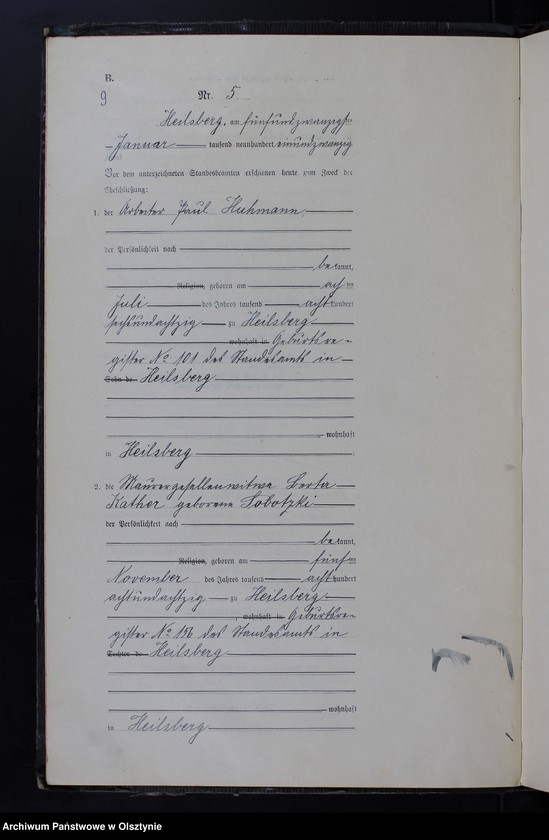 B.
9
Nr. 5.
Heilsberg, am fünfundzwanzigsten
Januar tausend neunhundert einundzwanzig
Vor dem unterzeichneten Standesbeamten erschienen heute zum Zweck der
Eheschließung:
1. der Arbeiter Paul Huhmann,
der Persönlichkeit nach
bekannt,
Religion, geboren am achten
Juli des Jahres tausend achthundert
sechsundachtzig zu Heilsberg
wohnhaft in Geburtsre-
gister No 101 des Standesamts in
Sohn de Heilsberg
wohnhaft
in Heilsberg
2. die Maurergesellenwitwe Berta
Kather geborene Sobotzki
der Persönlichkeit nach
bekannt,
Religion, geboren am fünften
November des Jahres tausend achthundert
achtundachtzig zu Heilsberg
, wohnhaft in Geburtsre-
gister No 156 des Standesamts in
Tochter de Heilsberg
wohnhaft
in Heilsberg
Archiwum Państwowe w Olsztynie